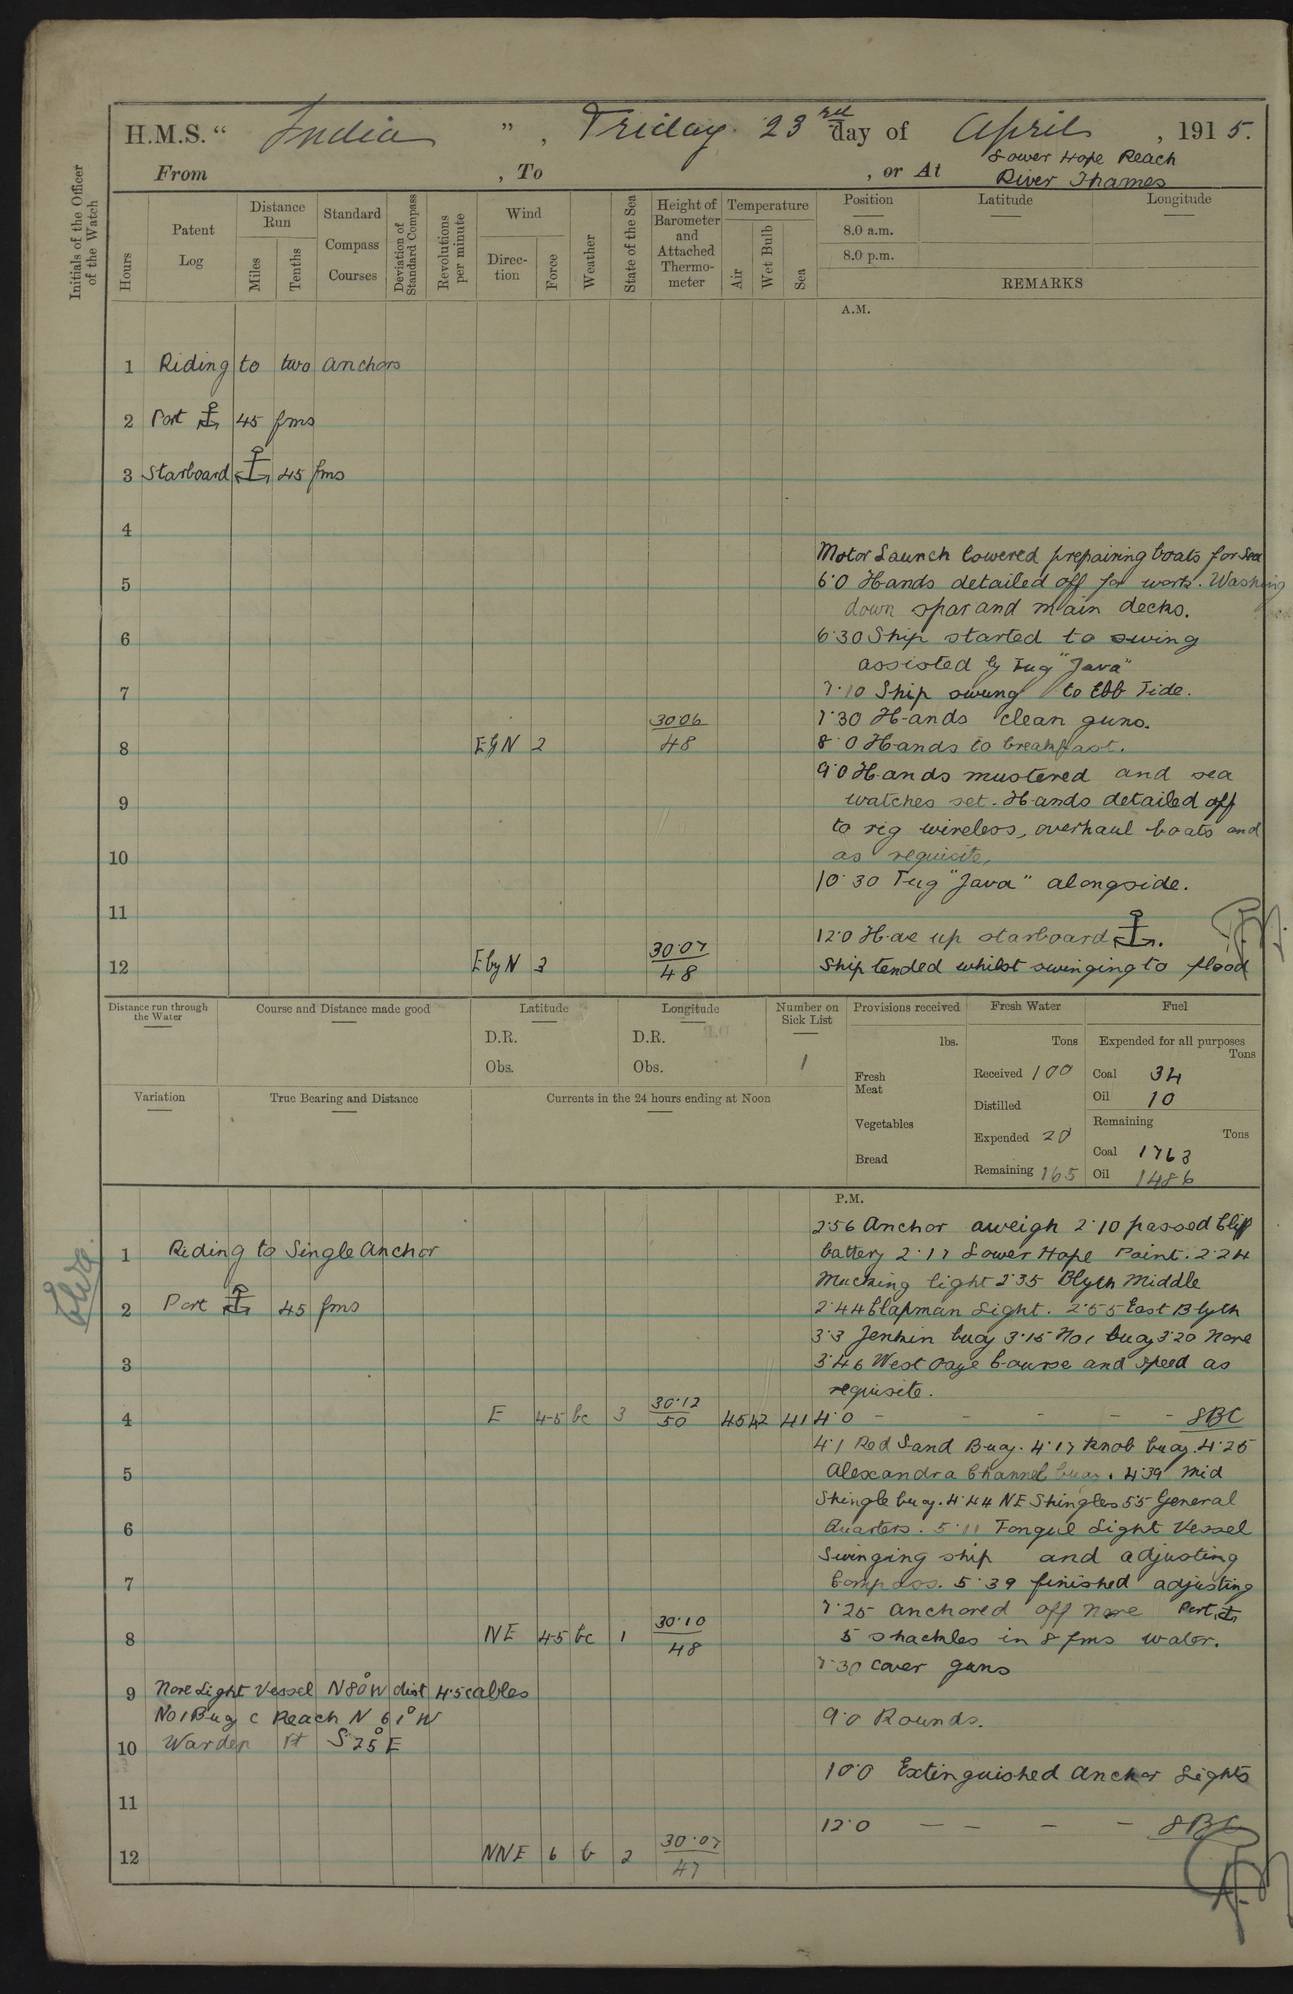 H.M.S. " India ", Friday 23rd day of April, 1915.
From , To , or At Lower Hope Reach
River Thames
Initials of the Officer of the Watch
Hours
Patent Log
Distance Run
Miles
Tenths
Standard Compass Courses
Deviation of Standard Compass
Revolutions per minute
Wind
Direction
Force
Weather
State of the Sea
Height of Barometer and Attached Thermometer
Temperature
Air
Wet Bulb
Sea
Position
Latitude
Longitude
8.0 a.m.
8.0 p.m.
REMARKS
A.M.
1 Riding to two anchors
2 Port ⚓ 45 fms
3 Starboard ⚓ 45 fms
4
Motor Launch lowered prepairing boats for Sea
5 6.0 Hands detailed off for work. Washing
down spar and main decks.
6 6.30 Ship started to swing
assisted by Tug "Java"
7 7.10 Ship swung to Ebb Tide.
7.30 Hands clean guns.
8 EbyN 2 30.06 / 48 8.0 Hands to breakfast.
9.0 Hands mustered and sea
9 watches set. Hands detailed off
to rig wireless, overhaul boats and
10 as requisite.
10.30 Tug "Java" alongside.
11
12.0 Hove up starboard ⚓.
12 EbyN 3 30.07 / 48 Ship tended whilst swinging to flood
Distance run through the Water
Course and Distance made good
Latitude
D.R.
Obs.
Longitude
D.R.
Obs.
Number on Sick List
1
Provisions received
lbs.
Fresh Meat
Vegetables
Bread
Fresh Water
Tons
Received 100
Distilled
Expended 20
Remaining 165
Fuel
Expended for all purposes
Tons
Coal 34
Oil 10
Remaining
Tons
Coal 1763
Oil 1486
Variation
True Bearing and Distance
Currents in the 24 hours ending at Noon
P.M.
2.56 Anchor aweigh 2.10 passed Cliff
1 Riding to Single Anchor battery 2.17 Lower Hope Point. 2.24
Mucking light 2.35 Blyth Middle
2 Port ⚓ 45 fms 2.44 Chapman Light. 2.55 East Blyth
3.3 Jenkin buoy 3.15 No 1 buoy 3.20 Nore
3 3.46 West Oaze Course and speed as
requisite.
4 E 4-5 bc 3 30.12 / 50 45 42 41 4.0 - - - - - SBC
4.1 Red Sand Buoy. 4.17 Knob buoy. 4.25
5 Alexandra Channel buoy. 4.39 Mid
Shingle buoy. 4.44 NE Shingles 5.5 General
6 Quarters. 5.11 Tongue Light Vessel
Swinging ship and adjusting
7 Compass. 5.39 finished adjusting
7.25 anchored off Nore Port ⚓
8 NE 4-5 bc 1 30.10 / 48 5 shackles in 8 fms water.
7.30 cover guns
9 Nore Light Vessel N80°W dist 4.5 cables
No 1 Buoy C Reach N 61°W 9.0 Rounds.
10 Warden Pt S 25°E
10.0 Extinguished Anchor Lights
11
12.0 - - - - SBC
12 NNE 6 b 2 30.07 / 47